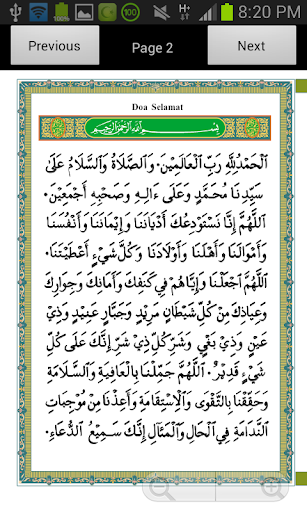 100%
100
H
8:20 PM
Previous
Page 2
Next
Doa Selamat
بِسْمِ اللَّهِ الرَّحْمَنِ الرَّحِيمِ
اَلْحَمْدُ لِلَّهِ رَبِّ الْعَالَمِينَ. وَالصَّلَاةُ وَالسَّلَامُ عَلَى
سَيِّدِنَا مُحَمَّدٍ وَعَلَى ءَالِهِ وَصَحْبِهِ أَجْمَعِينَ.
اللَّهُمَّ إِنَّا نَسْتَوْدِعُكَ أَدْيَانَنَا وَإِيمَانَنَا وَأَنْفُسَنَا
وَأَمْوَالَنَا وَأَهْلَنَا وَأَوْلَادَنَا وَكُلَّ شَيْءٍ أَعْطَيْتَنَا.
اللَّهُمَّ اجْعَلْنَا وَإِيَّاهُمْ فِي كَنَفِكَ وَأَمَانِكَ وَجِوَارِكَ
وَعِيَاذِكَ مِنْ كُلِّ شَيْطَانٍ مَرِيدٍ وَجَبَّارٍ عَنِيدٍ وَذِي
عَيْنٍ وَذِي بَغْيٍ وَشَرِّ كُلِّ ذِي شَرٍّ إِنَّكَ عَلَى كُلِّ
شَيْءٍ قَدِيرٌ. اللَّهُمَّ جَمِّلْنَا بِالْعَافِيَةِ وَالسَّلَامَةِ
وَحَقِّقْنَا بِالتَّقْوَى وَالْاِسْتِقَامَةِ وَأَعِذْنَا مِنْ مُوجِبَاتِ
النَّدَامَةِ فِي الْحَالِ وَالْمَئَالِ إِنَّكَ سَمِيعُ الدُّعَاءِ.